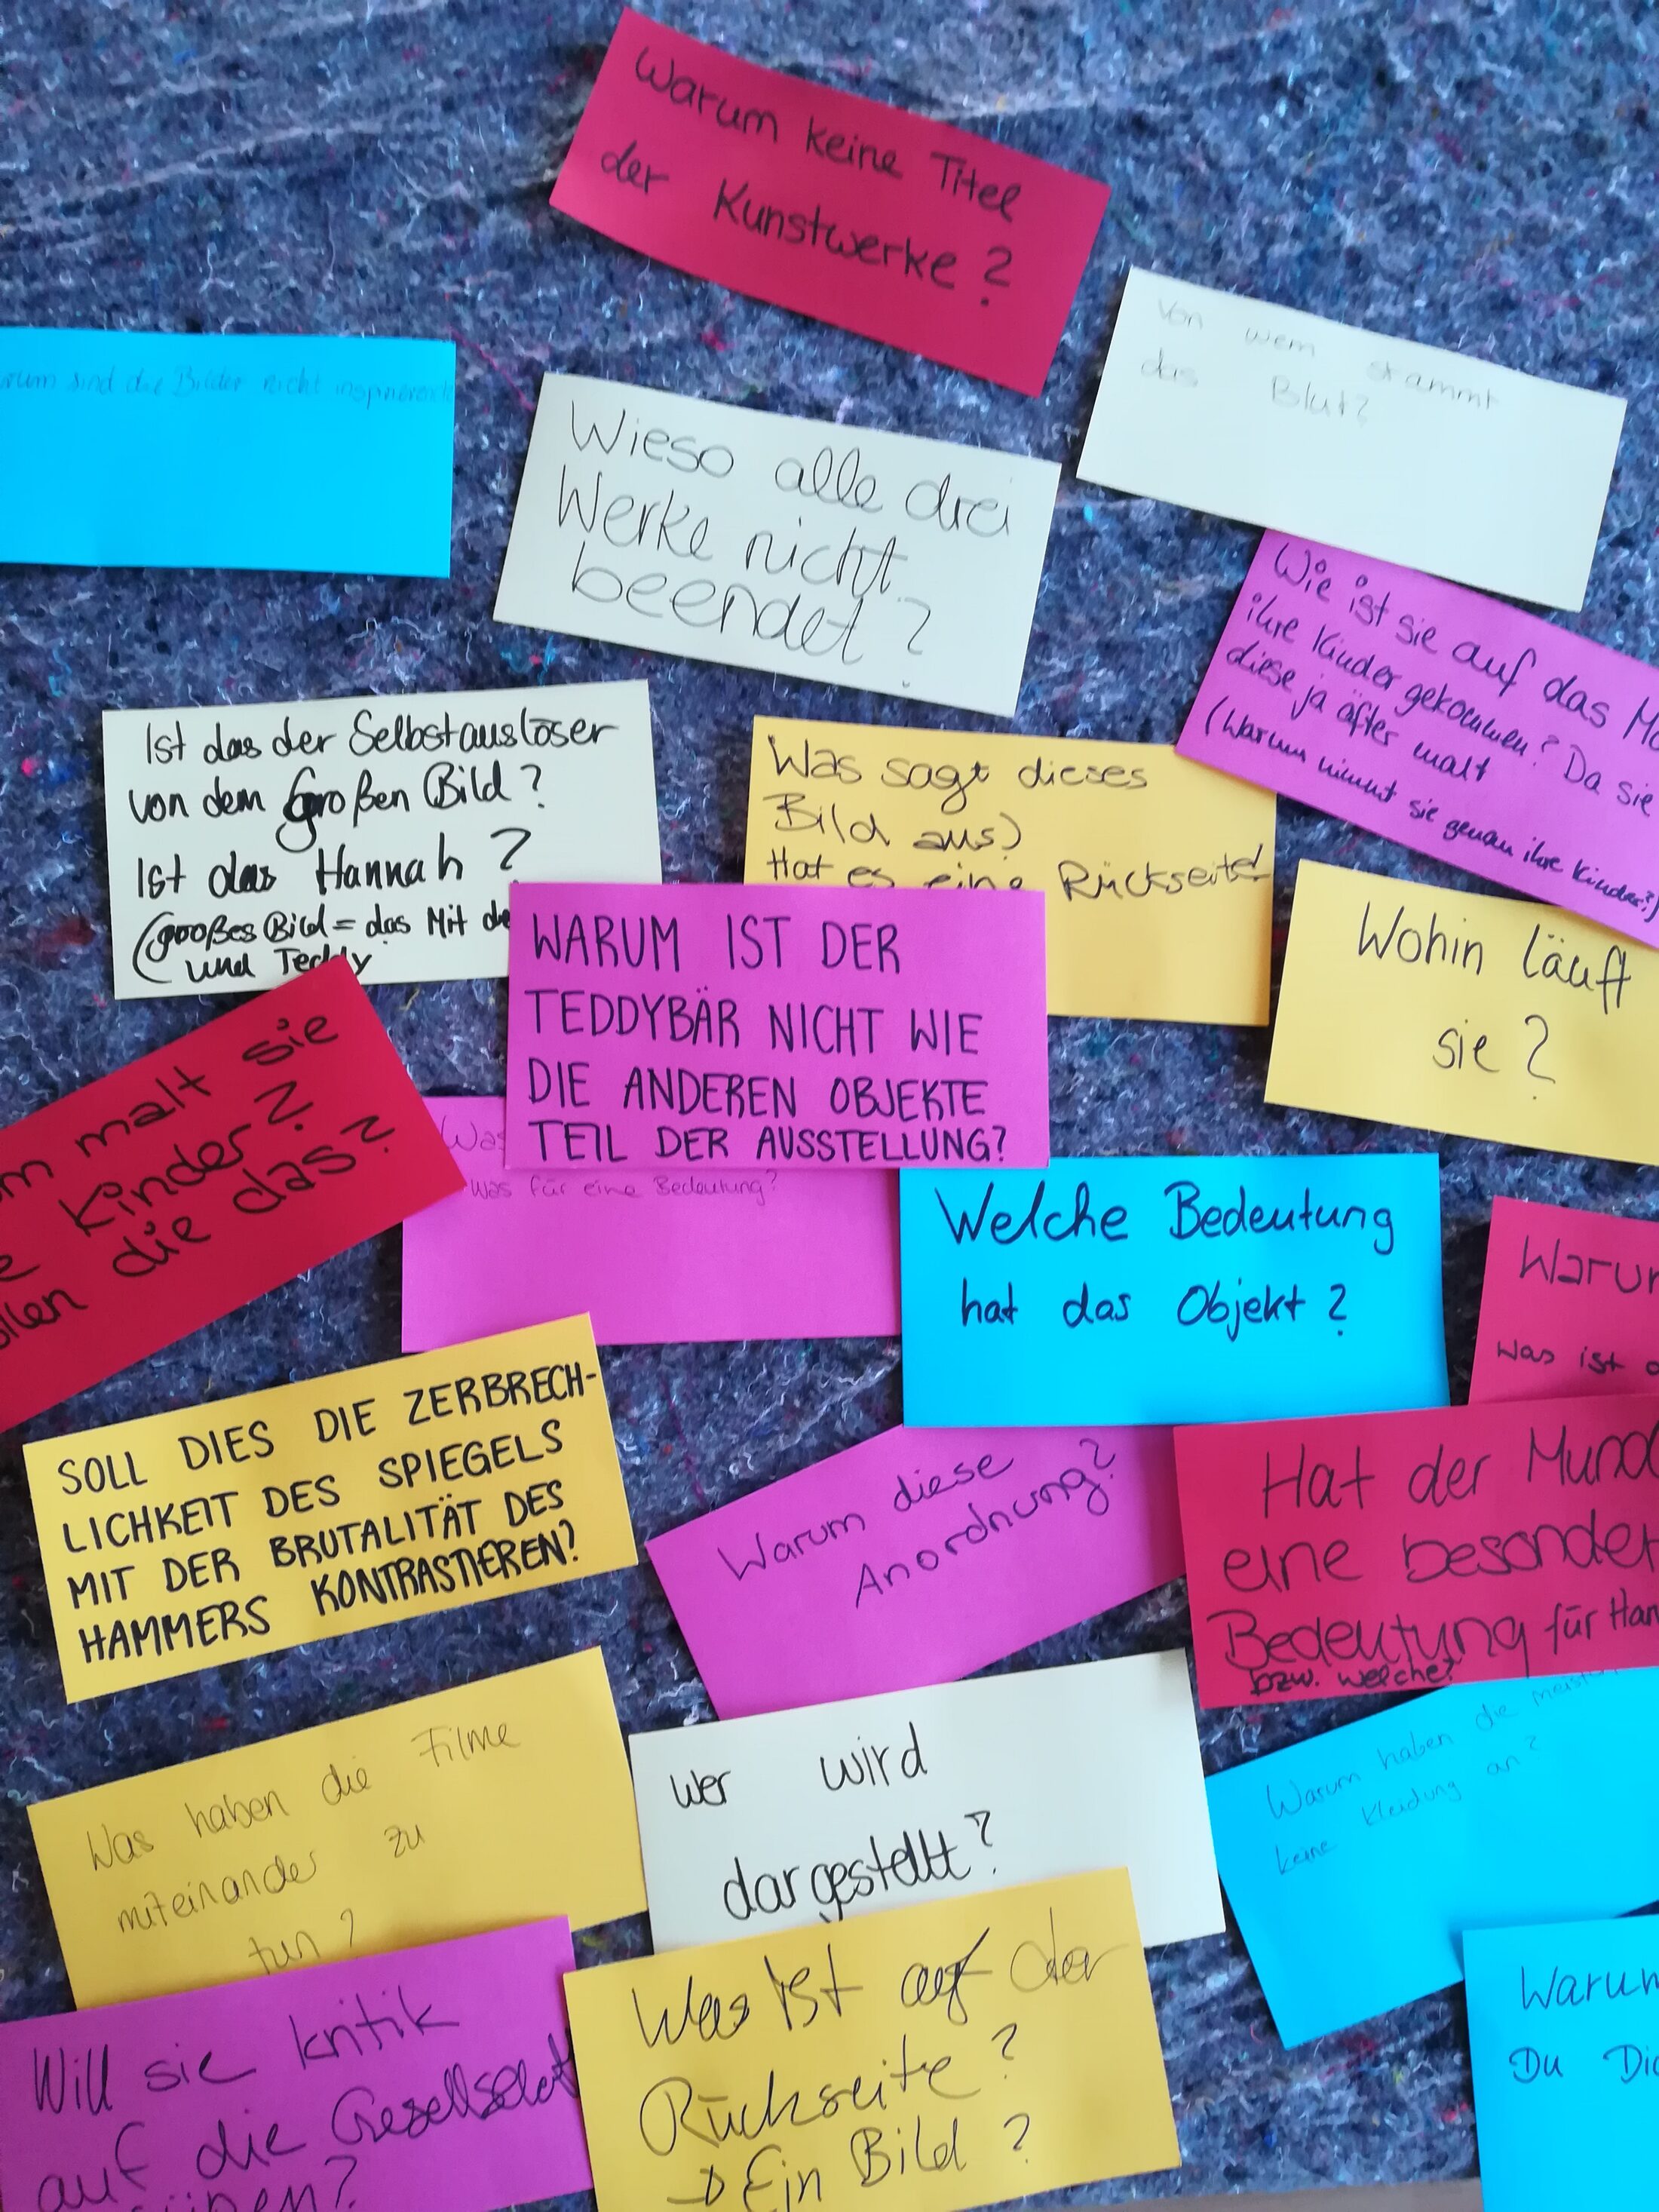 Warum keine Titel
der Kunstwerke?
Von wem stammt
das Blut?
sind die Bilder nicht
Wieso alle drei
Werke nicht
beendet?
Wie ist sie auf das
ihre Kinder gekommen? Da sie
diese ja öfter malt
(Warum nimmt sie genau ihre Kinder?)
Ist das der Selbstauslöser
von dem Großen Bild?
Ist das Hannah?
(großes Bild = das Mit
und Teddy
Was sagt dieses
Bild aus?
Hat es eine Rückseite!
Wohin läuft
sie?
WARUM IST DER
TEDDYBÄR NICHT WIE
DIE ANDEREN OBJEKTE
TEIL DER AUSSTELLUNG?
malt sie
Kinder?
die das?
Was
Was für eine Bedeutung?
Welche Bedeutung
hat das Objekt?
Was ist
SOLL DIES DIE ZERBRECH-
LICHKEIT DES SPIEGELS
MIT DER BRUTALITÄT DES
HAMMERS KONTRASTIEREN?
Warum diese
Anordnung?
Hat der Mund
eine
Bedeutung für
bzw. welche?
Was haben die Filme
miteinander zu
tun?
wer wird
dargestellt?
Warum haben die
keine Kleidung an?
Will sie kritik
auf die Gesellschaft
Was ist auf der
Rückseite?
→ Ein Bild?
Du